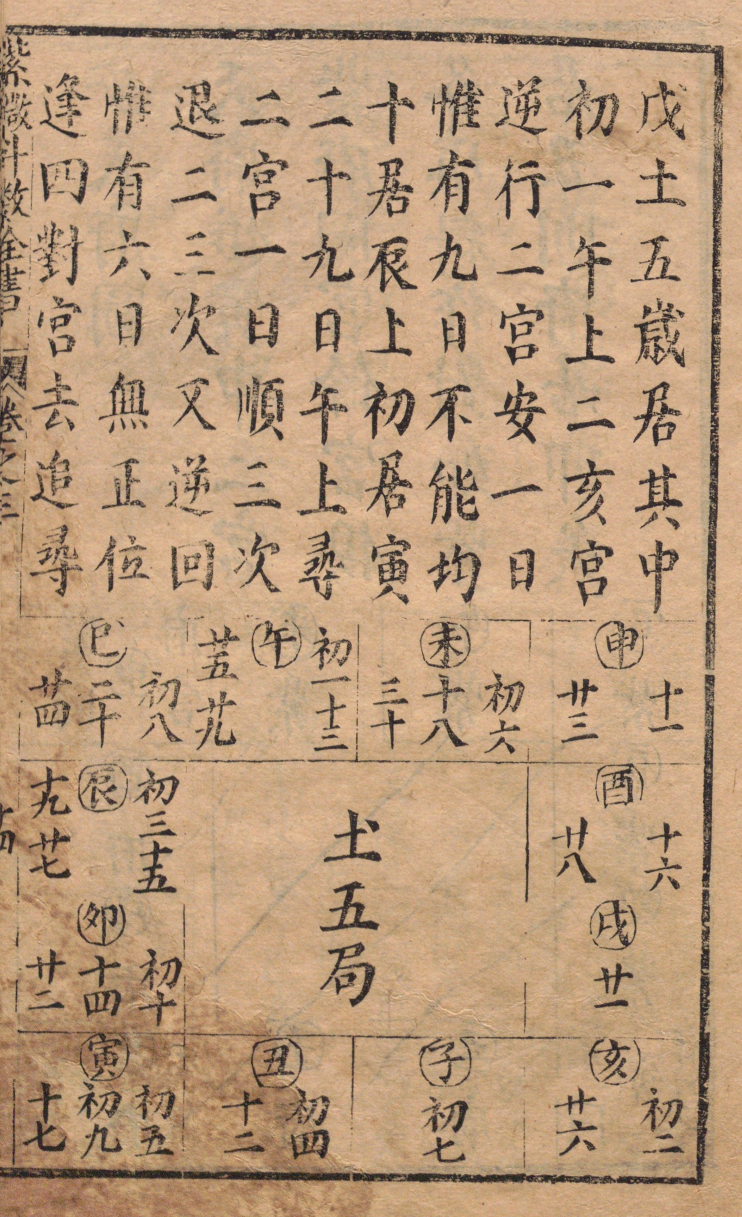 戊土五歲居其中
初一午上二亥宮
逆行二宮安一日
惟有九日不能均
十居辰上初居寅
二十九日午上尋
二宮一日順三次
退二三次又逆回
惟有六日無正位
逢四對宮去追尋
十一
申
廿三
初六
未
十八
三十
初一十三
午
廿五廿九
初八
巳
二十
廿四
十六
酉
廿八
戌
廿一
土五局
初三十五
辰
十九廿七
初十
卯
十四
廿二
初二
亥
廿六
子
初七
初四
丑
十二
初五
寅
初九
十七
紫微斗數全書
卷之三